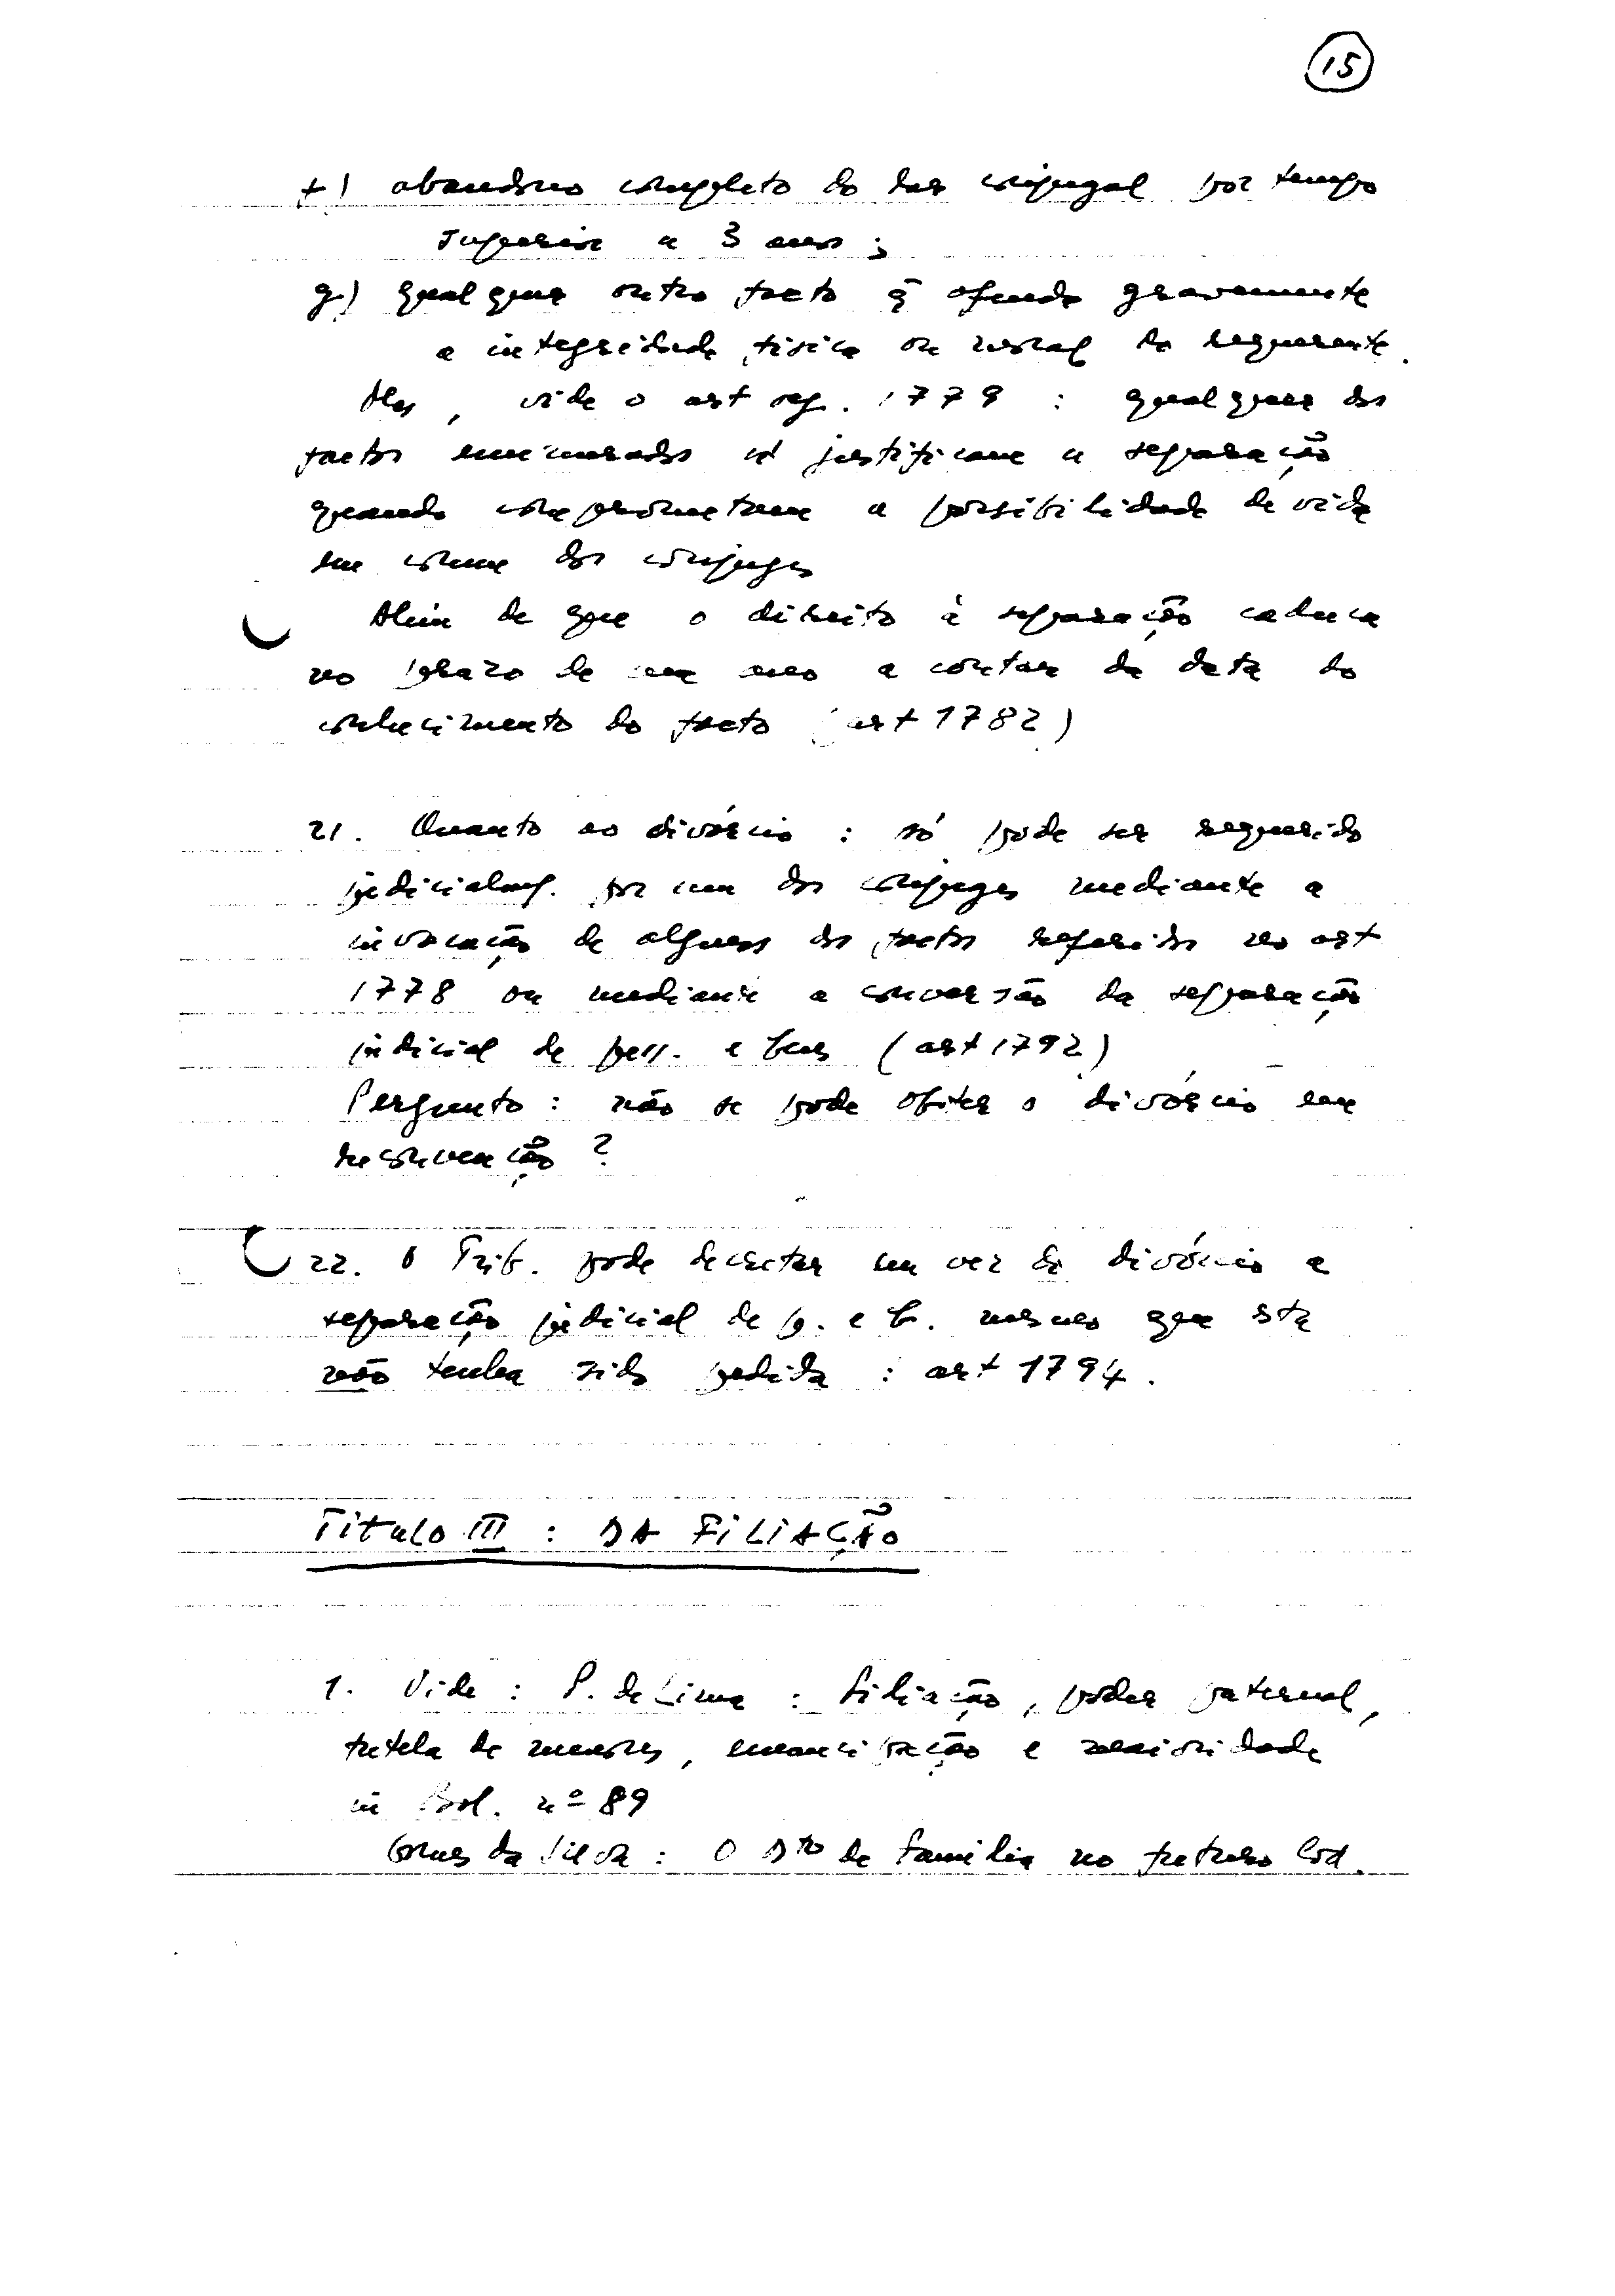 15
f) abandono completo do lar conjugal por tempo
superior a 3 anos ;
g) qualquer outro facto q̃ ofenda gravemente
a integridade física ou moral do requerente.
Mas, vide o art seg. 1779 : qualquer dos
factos enumerados só justificam a separação
quando comprometam a possibilidade de vida
em comum dos conjuges
Além de que o direito à separação caduca
no prazo de um ano a contar da data do
conhecimento do facto (art 1782)
21. Quanto ao divórcio : só pode ser requerido
judicialm/. por um dos conjuges mediante a
invocação de alguns dos factos referidos no art
1778 ou mediante a conversão da separação
judicial de pess. e bens (art 1792)
Pergunto : não se pode obter o divórcio em
reconvenção ?
22. O Trib. pode decretar em vez do divórcio a
separação judicial de p. e b. mesmo que esta
não tenha sido pedida : art 1794.
Titulo III : DA FILIAÇÃO
1. Vide : P. de Lima : Filiação, poder paternal,
tutela de menores, emancipação e maioridade
in Bol. nº 89
Gomes da Silva : O Dto de Familia no futuro Cod.